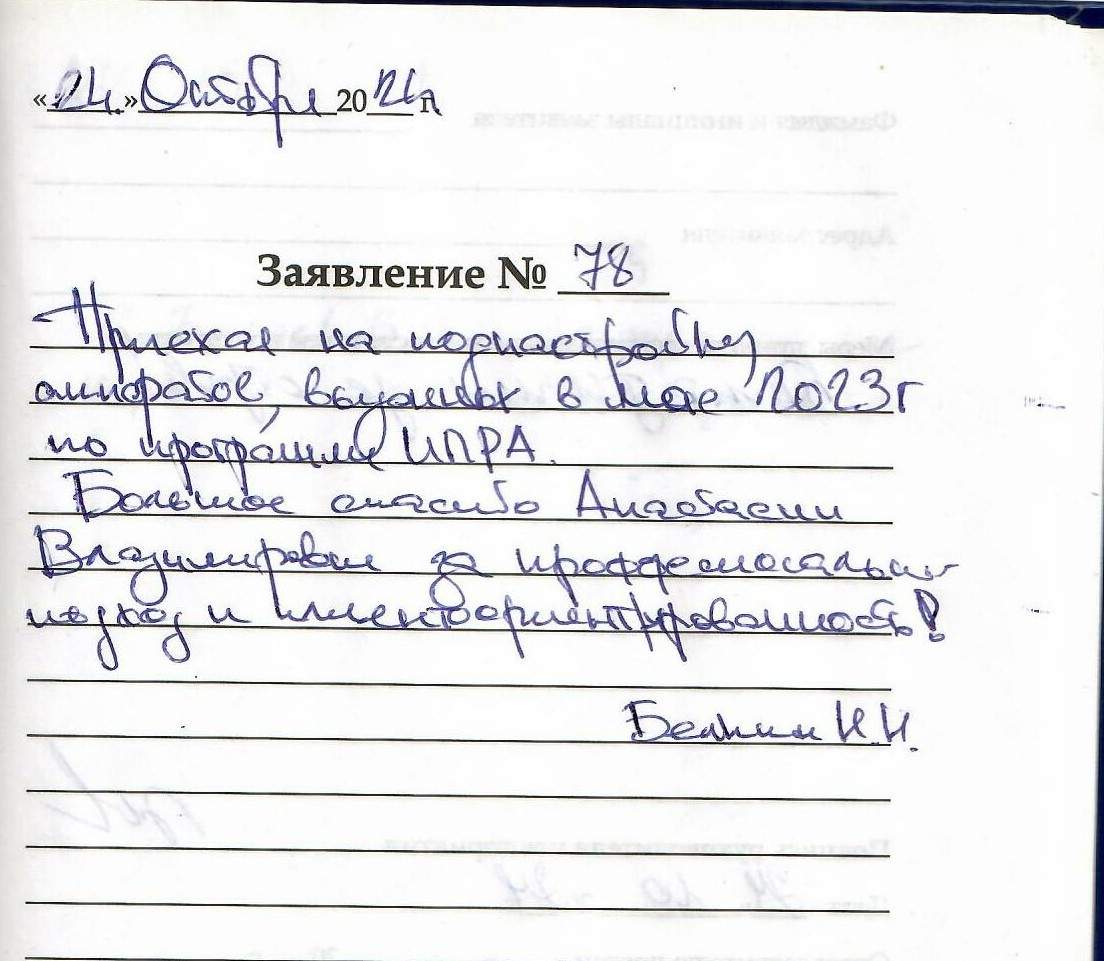 «24» Октября 2024 г.
Заявление № 78
Приехал на поднастройку
аппаратов, выданных в мае 2023г
по программе ИПРА.
Большое спасибо Анастасии
Владимировне за
подход и клиентоориентированность!
И.И.